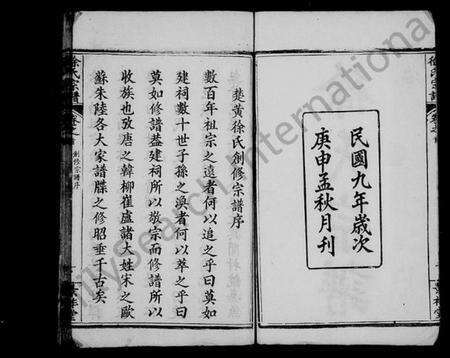 民國九年歲次
庚申孟秋月刊
楚黃徐氏創修宗譜序
數百年祖宗之遠者何以追之乎曰莫如
建祠數十世子孫之渙者何以萃之乎曰
莫如修譜蓋建祠所以敬宗而修譜所以
收族也攷唐之韓柳崔盧諸大姓宋之歐
蘇朱陸各大家譜牒之修昭垂千古矣
徐氏宗譜
卷之
創修宗譜序
FamilySearch International